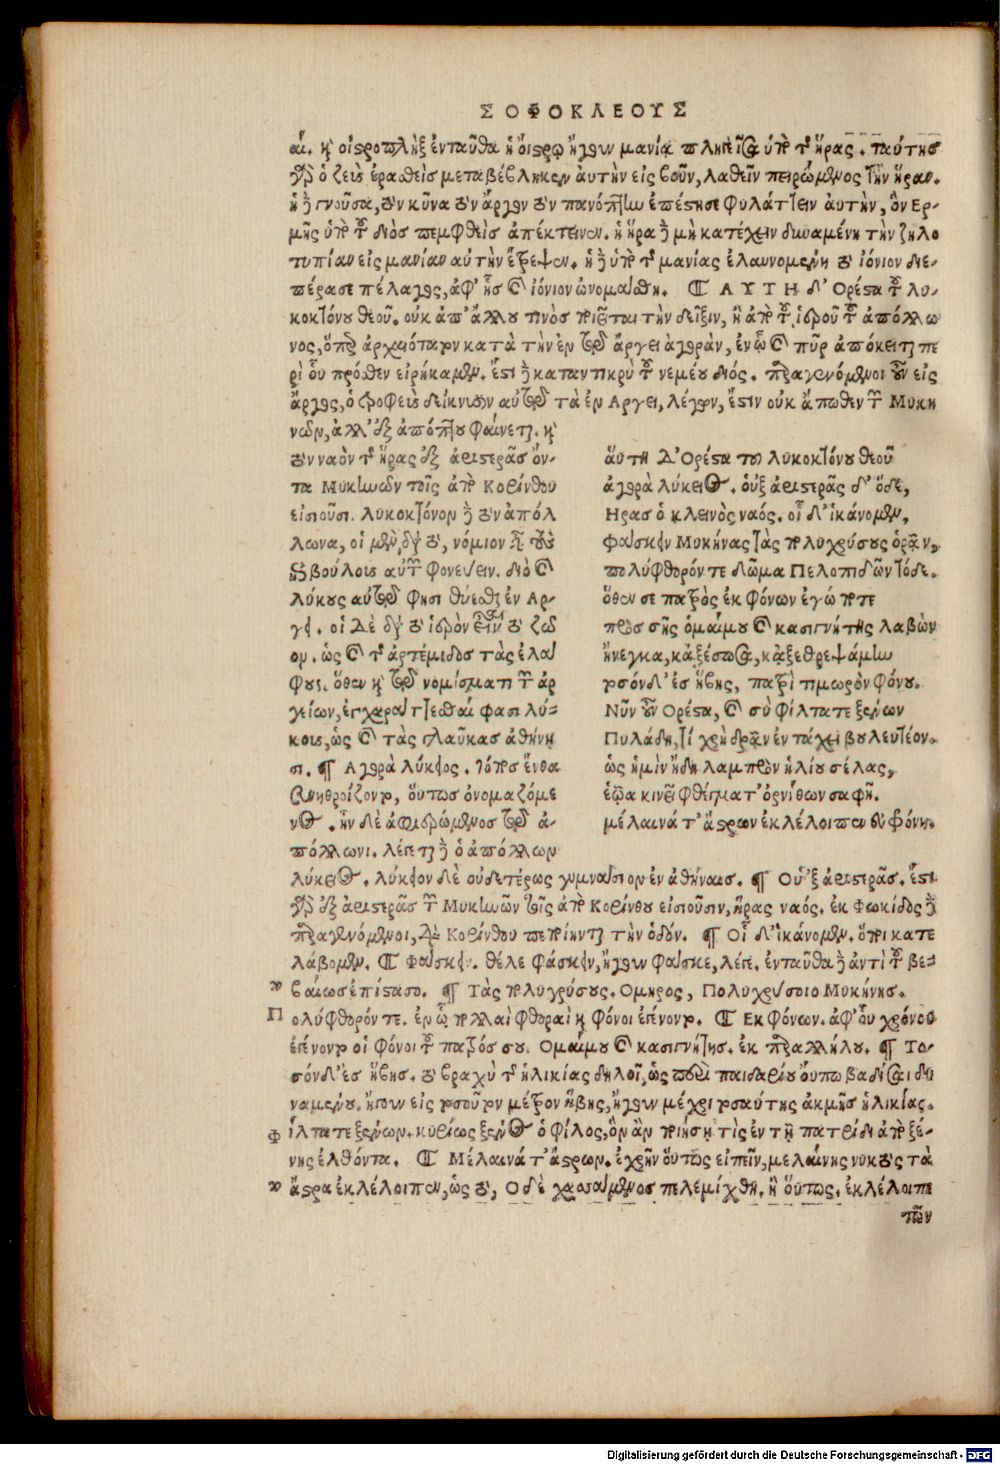 ΣΟΦΟΚΛΕΟΥΣ
αι. καὶ οἰστροπλὴξ ἐνταῦθα ἡ οἴστρῳ ἤγουν μανίᾳ πληγεῖσα ὑπὸ τῆς ἥρας. ταύτης
γὰρ ὁ ζεὺς ἐρασθεὶς μεταβέβληκεν αὐτὴν εἰς βοῦν, λαθεῖν πειρώμενος τὴν ἥραν.
ἡ δὲ γνοῦσα, τὸν κύνα τὸν ἄργον τὸν πανόπτην ἐπέστησε φυλάττειν αὐτὴν, ὃν Ερ-
μῆς ὑπὸ τοῦ διὸς πεμφθεὶς ἀπέκτεινεν. ἡ ἥρα δὲ μὴ κατέχειν δυναμένη τὴν ζηλο
τυπίαν εἰς μανίαν αὐτὴν ἔτρεψεν. ἡ δὲ ὑπὸ τῆς μανίας ἐλαυνομένη τὸ ἰόνιον διε-
πέρασε πέλαγος, ἀφ' ἧς καὶ ἰόνιον ὠνομάσθη. ¶ ΑΥΤΗ δ' Ορέστα τοῦ λυ-
κοκτόνου θεοῦ. οὐκ ἀπ' ἄλλου τινὸς ποιεῖται τὴν δεῖξιν, ἢ ἀπὸ τοῦ ἱεροῦ τοῦ ἀπόλλω
νος, ὅπερ ἀρχαιότατον κατὰ τὴν ἐν τῷ ἄργει ἀγορὰν, ἐν ᾧ καὶ πῦρ ἀπόκειται πε
ρὶ οὗ πρόσθεν εἰρήκαμεν. ἔστι δὲ καταντικρὺ τοῦ νεμέου διός. παραγενόμενοι οὖν εἰς
ἄργος, ὁ τροφεὺς δείκνυσιν αὐτῷ τὰ ἐν Αργει, λέγων, ἔστιν οὐκ ἄπωθεν τῶν Μυκη
νῶν, ἀλλ' ἐξ ἀπόπτου φαίνεται. καὶ
τὸν ναὸν τῆς ἥρας ἐξ ἀριστερᾶς ὄν-
τα Μυκηνῶν τοῖς ἀπὸ Κορίνθου
εἰσιοῦσι. λυκοκτόνον δὲ τὸν ἀπόλ
λωνα, οἱ μὲν διὰ τὸ, νόμιον
βούλους αὐτῶν φονεύειν. διὸ καὶ
λύκους αὐτῷ φησι θύεσθαι ἐν Αρ-
γει. οἱ Δὲ διὰ τὸ ἱερὸν εἶναι τὸ ζῶ
ον. ὡς καὶ τῆς ἀρτέμιδος τὰς ἐλά
φους. ὅθεν καὶ τῷ νομίσματι τῶν ἀρ
γείων, ἐγχαράττεσθαί φασι λύ-
κους, ὡς καὶ τὰς γλαῦκας ἀθήνη
σι. ¶ Αγορὰ λύκειος. τότος ἔνθα
συνηθροίζοντο, οὕτως ὀνομαζόμε
νος. ἦν δὲ ἀφιερωμένος τῷ ἀ-
πόλλωνι. λέγεται δὲ ὁ ἀπόλλων
ἅυτη Δ' Ορέστα του λυκοκτόνου θεοῦ
ἀγορὰ λύκειος. ὁὐξ ἀριστερᾶς δ' ὅδε,
Ηρας ὁ κλεινὸς ναός. οἷ δ' ἱκάνομεν,
Φάσκειν Μυκήνας τὰς πολυχρύσους ὁρᾶν,
πολύφθορόν τε δῶμα Πελοπιδῶν τόδε.
ὅθεν σε πατρὸς ἐκ φόνων ἐγώ ποτε
πρὸς σῆς ὁμαίμου καὶ κασιγνήτης λαβὼν
ἤνεγκα, κἀξέσωσα, κἀξεθρεψάμην
τοσόνδ' ἐς ἥβης, πατρὶ τιμωρὸν φόνου.
Νῦν οὖν Ορέστα, καὶ σὺ φίλτατε ξένων
Πυλάδη, τί χρὴ δρᾶν ἐν τάχει βουλευτέον.
ὡς ἡμὶν ἤδη λαμπρὸν ἡλίου σέλας,
ἑῷα κινεῖ φθέγματ' ὀρνίθων σαφῆ.
μέλαινά τ' ἄστρων ἐκλέλοιπεν εὐφρόνη.
λύκειος. λύκειον δὲ οὐδετέρως γυμνάσιον ἐν ἀθήναις. ¶ Οὑξ ἀριστερᾶς. ἔστι
γὰρ ἐξ ἀριστερᾶς τῶν Μυκηνῶν τοῖς ἀπὸ Κορίνθου εἰσιοῦσιν, ἥρας ναός. ἐκ Φωκίδος δὲ
παραγενόμενοι, διὰ Κορίνθου πεποίηνται τὴν ὁδόν. ¶ Οἷ δ' ἱκάνομεν. ὅποι κατε
λάβομεν. ¶ Φάσκειν. θέλε φάσκειν, ἤγουν φάσκε, λέγε. ἐνταῦθα δὲ ἀντὶ τοῦ βε-
βαίως ἐπίστασο. ¶ Τὰς πολυχρύσους. Ομηρος, Πολυχρύσοιο Μυκήνης.
Πολύφθορόν τε. ἐν ᾧ πολλαὶ φθοραὶ καὶ φόνοι ἐγένοντο. ¶ Εκ Φόνων. ἀφ' οὗ χρόνου
ἐγένοντο οἱ φόνοι τοῦ πατρός σου. Ομαίμου καὶ κασιγνήτης. ἐκ παραλλήλου. ¶ Το-
σόνδ' ἐς ἥβης. τὸ βραχὺ τῆς ἡλικίας δηλοῖ, ὡς παιδαρίου οὔπω βαδίσαι δυ
ναμένου. ἤγουν εἰς τοσοῦτον μέτρον ἥβης, ἤγουν μέχρι τοσαύτης ἀκμῆς ἡλικίας.
Φίλτατε ξένων. κυρίως ξένος ὁ φίλος, ὃν ἂν ποιήσῃ τὶς ἐν τῇ πατρίδι ἀπὸ ξέ-
νης ἐλθόντα. ¶ Μέλαινά τ' ἄστρων. ἐχρῆν οὕτως εἰπεῖν, μελαίνης νυκτὸς τὰ
ἄστρα ἐκλέλοιπεν, ὡς τὸ, Ο δὲ χασσάμενος πελεμίχθη. ἢ οὕτως. ἐκλέλοιπε
τῶν
Digitalisierung gefördert durch die Deutsche Forschungsgemeinschaft - DFG